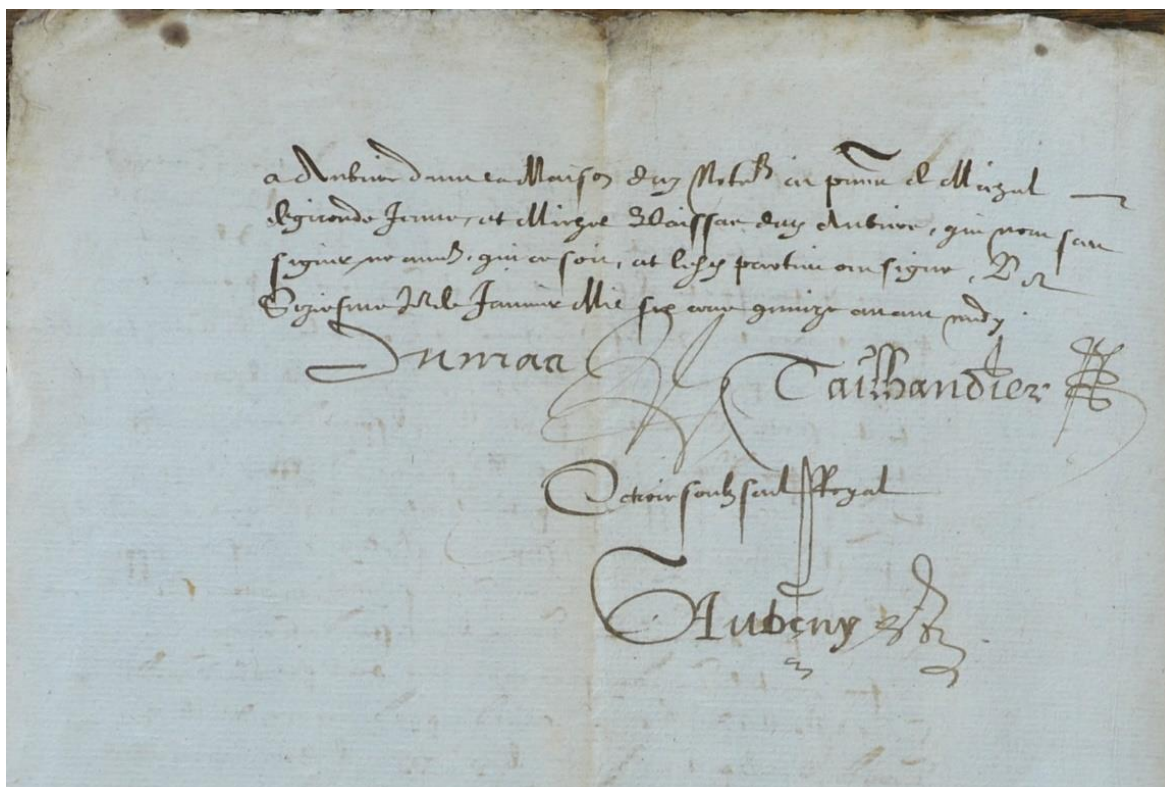 a Aubiere dans la Maison du Notere en pnce de Michel
degironde Jeune, et Michel Vaissac dud Aubiere, qui nont sceu
signer ne aud, qui ce soit, et lesd parties ont signe, Le
Seziesme de Janvier Mil six cens quinze avant midy
Dumas
Tailhandier
Octroie soubz seel Royal
Aubeny